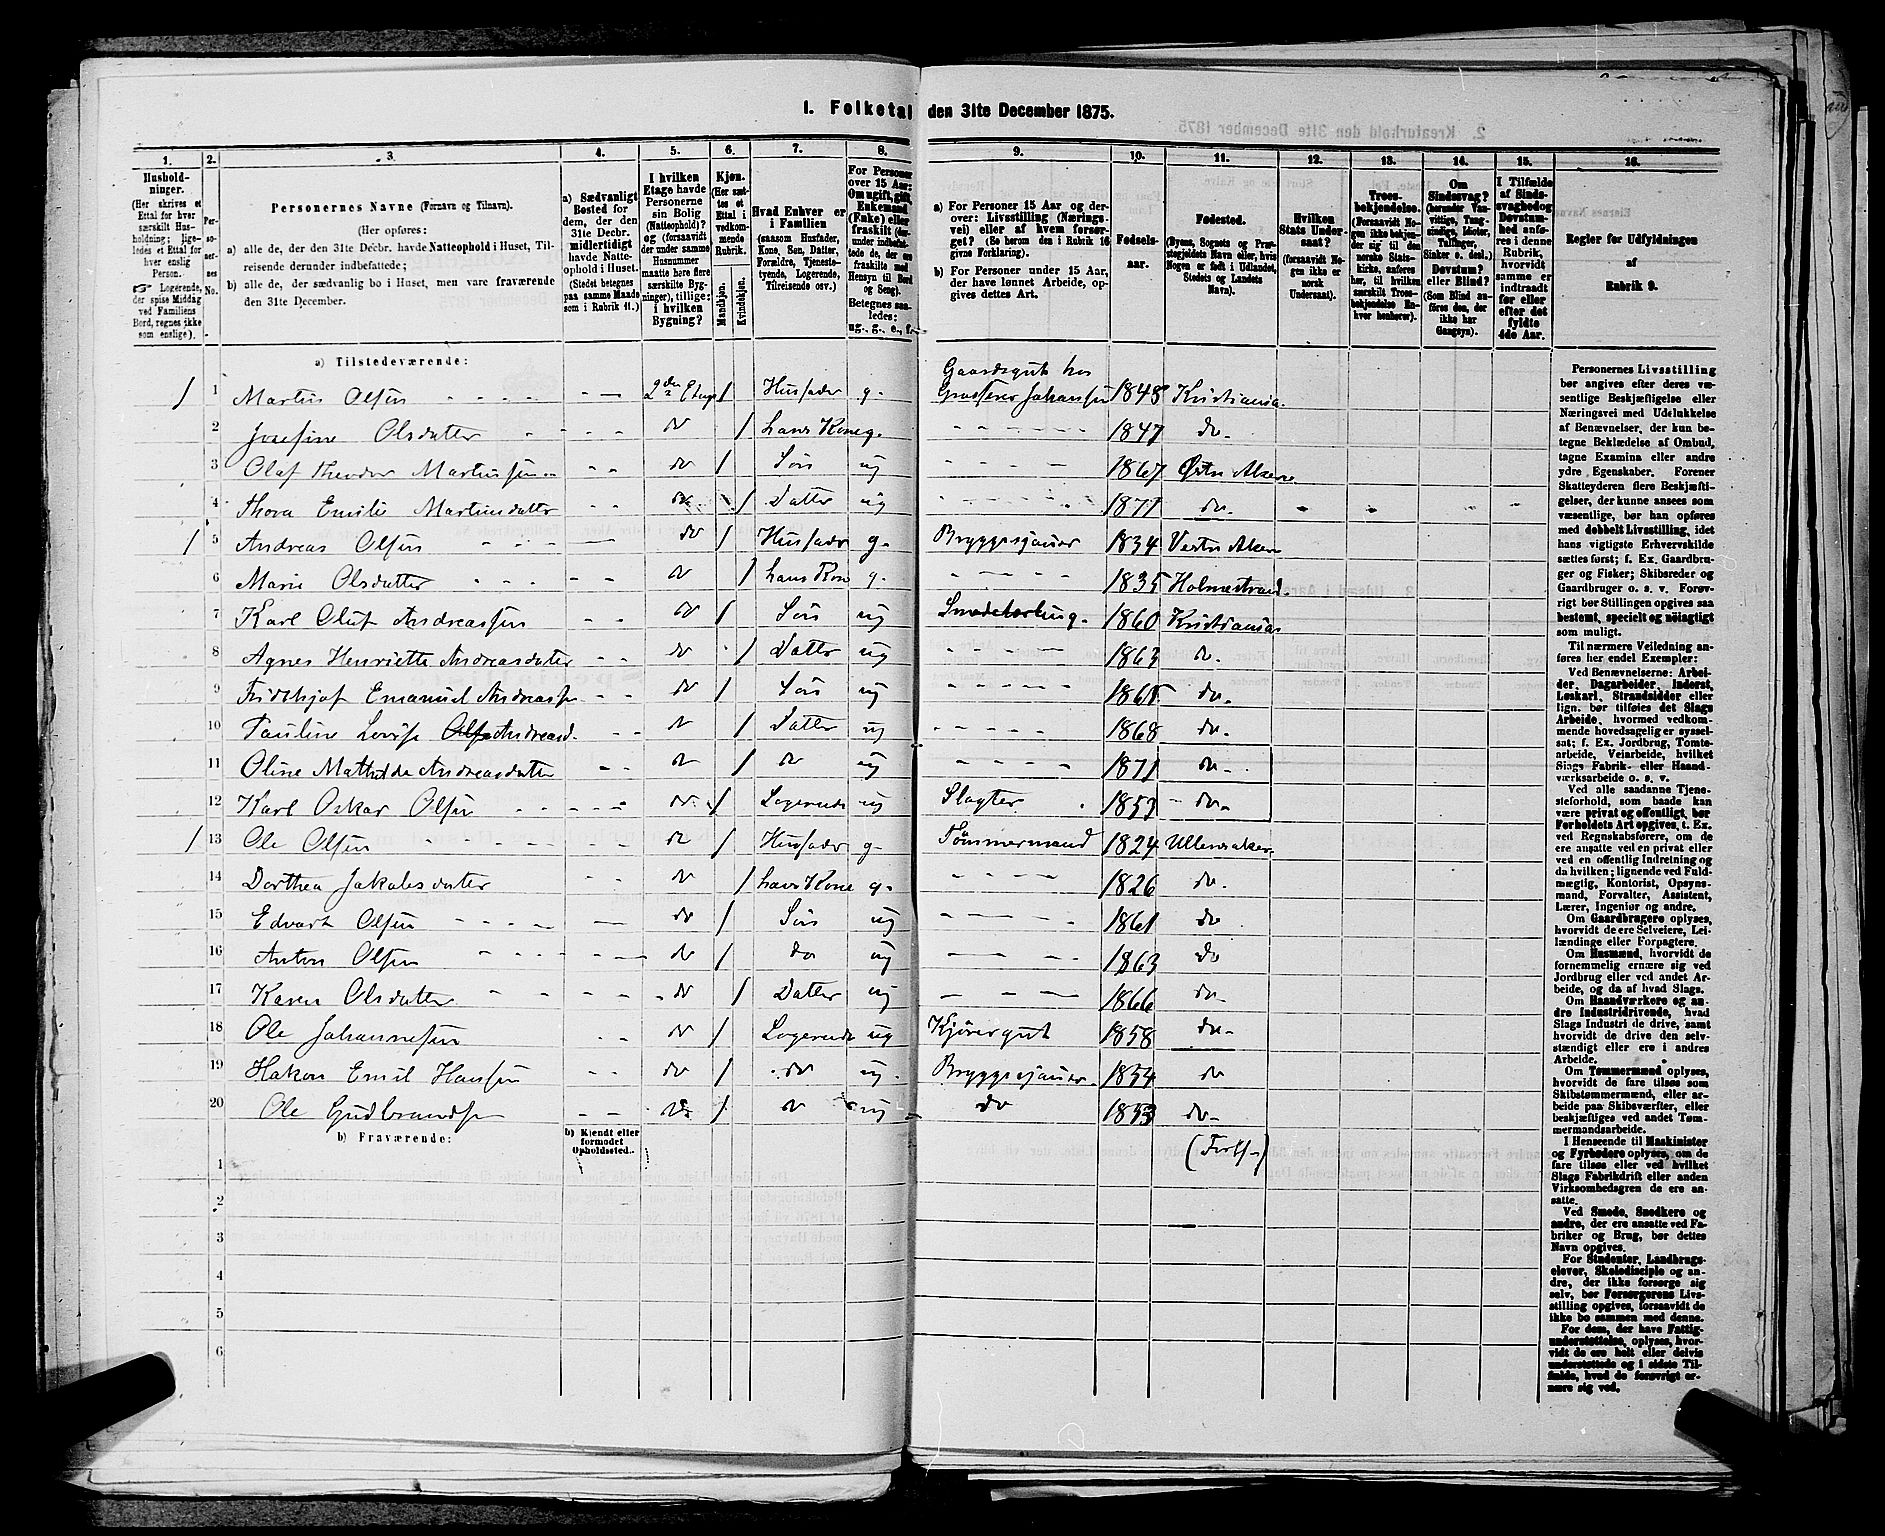 1. Folketal den 31te December 1875.
1. 2. 3. 4. 5. 6. 7. 8. 9. 10. 11. 12. 13. 14. 15. 16.
Personernes Navne (Fornavn og Tilnavn).
(Her opføres:
a) alle de, der den 31te Decbr. havde Natteophold i Huset, Tilreisende derunder indbefattede;
b) alle de, der sædvanlig bo i Huset, men vare fraværende den 31te December.
a) Sædvanligt Bosted for dem, der den 31te Decbr. midlertidigt havde Natteophold i Huset. (Stedet betegnes paa samme Maade som i Rubrik 11.)
Kjøn. (Her sættes et Ettal i vedkommende Rubrik.
Mandkjøn. Kvindekjøn.
Hvad Enhver er i Familien (saasom Husfader, Kone, Søn, Datter, Forældre, Tjenestetyende, Logerende, Tilreisende osv.)
a) For Personer 15 Aar og derover: Livsstilling (Næringsvei) eller af hvem forsørget? (Se herom den i Rubrik 16 givne Forklaring).
b) For Personer under 15 Aar, der have lønnet Arbeide, opgives dettes Art.
Fødselsaar.
Fødested. (Byens, Sognets og Præstegjeldets Navn eller, hvis Nogen er født i Udlandet, Stedets og Landets Navn).
Hvilken Stats Undersaat? (forsaavidt Nogen ikke er norsk Undersaat).
Regler for Udfyldningen af Rubrik 9.
a) Tilstedeværende:
1 1 Martin Olsen 2den Etage 1 Husfader g. Gaardsgut hos Grosserer Johansen 1848 Kristiania
2 Josefine Olsdatter do 1 hans Kone g. 1847 do
3 Olaf Theodor Martinsen do 1 Søn ug 1867 Østre Aker
4 Thora Emilie Martinsdatter do 1 Datter ug 1871 do
1 5 Andreas Olsen do 1 Husfader g. Bryggesjauer 1834 Vestre Aker
6 Marie Olsdatter do 1 hans Kone g. 1835 Holmestrand
7 Karl Oluf Andreassen do 1 Søn ug 1860 Kristiania
8 Agnes Henriette Andreasdatter do 1 Datter ug 1863 do
9 Fridthjof Emanuel Andreassen do 1 Søn ug 1865 do.
10 Pauline Lovise Andreasd. do 1 Datter ug 1868 do.
11 Oline Mathilde Andreasdatter do 1 do ug 1871 do
12 Karl Oskar Olsen do 1 Logerende ug Slagter 1853 do
1 13 Ole Olsen do 1 Husfader g. Tømmermand 1824 Ullensaker
14 Dorthea Jakobsdatter do 1 hans Kone g. 1826 do.
15 Edvart Olsen do 1 Søn ug 1861 do
16 Anton Olsen do 1 do ug 1863 do
17 Karen Olsdatter do 1 Datter ug 1866 do
18 Ole Johannesen do 1 Logerende ug Kjøregut 1858 do
19 Hakon Emil Hansen do 1 do ug Bryggesjauer 1854 do
20 Ole Gudbrandsen do 1 do ug do 1853 do
b) Fraværende:
b) Kjendt eller formodet Opholdssted.
1
2
3
4
5
6
Personernes Livsstilling bør angives efter deres væsentlige Beskjæftigelse eller Næringsvei med Udelukkelse af Benævnelser, der kun betegne Beklædelse af Ombud, tagne Examina eller andre ydre Egenskaber. Forener Skatteyderen flere Beskjæftigelser, der kunne ansees som væsentlige, bør han opføres med dobbelt Livsstilling, idet hans vigtigste Erhvervskilde sættes først; f. Ex. Gaardbruger og Fisker; Skibsreder og Gaardbruger o. s. v. Forøvrigt bør Stillingen opgives saa bestemt, specielt og nøiagtigt som muligt.
Til nærmere Veiledning anføres her endel Exempler:
Ved Benævnelserne: Arbeider, Dagarbeider, Inderst, Løskarl, Strandsidder eller lign. bør tilføies det Slags Arbeide, hvormed vedkommende hovedsagelig er sysselsat; f. Ex. Jordbrug, Tomtearbeide, Veiarbeide, hvilket Slags Fabrik- eller Haandværksarbeide o. s. v.
Ved alle saadanne Tjenesteforhold, som baade kan være privat og offentligt, bør Forholdets Art opgives, t. Ex. ved Regnskabsførere, om de ere ansatte ved en privat eller ved en offentlig Indretning og da hvilken; lignende ved Fuldmægtig, Kontorist, Opsynsmand, Forvalter, Assistent, Lærer, Ingeniør og andre.
Om Gaardbrugere oplyses, hvorvidt de ere Selveiere, Leilændinge eller Forpagtere.
Om Husmænd, hvorvidt de fornemmelig ernære sig ved Jordbrug eller ved andet Arbeide, og da af hvad Slags.
Om Haandværkere og andre Industridrivende, hvad Slags Industri de drive, samt hvorvidt de drive den selvstændigt eller ere i andres Arbeide.
Om Tømmermænd oplyses, hvorvidt de fare tilsøs som Skibstømmermænd, eller arbeide paa Skibsværfter, eller beskjæftiges ved andet Tømmermandsarbeide.
I Henseende til Maskinister og Fyrbødere oplyses, om de fare tilsøs eller ved hvilket Slags Fabrikdrift eller anden Virksomhedsgren de ere ansatte.
Ved Smede, Snedkere og andre, der ere ansatte ved Fabriker og Brug, bør dettes Navn opgives.
For Studenter, Landbrugselever, Skoledisciple og andre, der ikke forsørge sig selv, bør Forsørgerens Livsstilling opgives, forsaavidt de ikke bo sammen med denne.
For dem, der have Fattigunderstøttelse, oplyses, hvorvidt de ere helt eller delvis understøttede og i sidste Tilfælde, hvad de forøvrigt ernære sig ved.